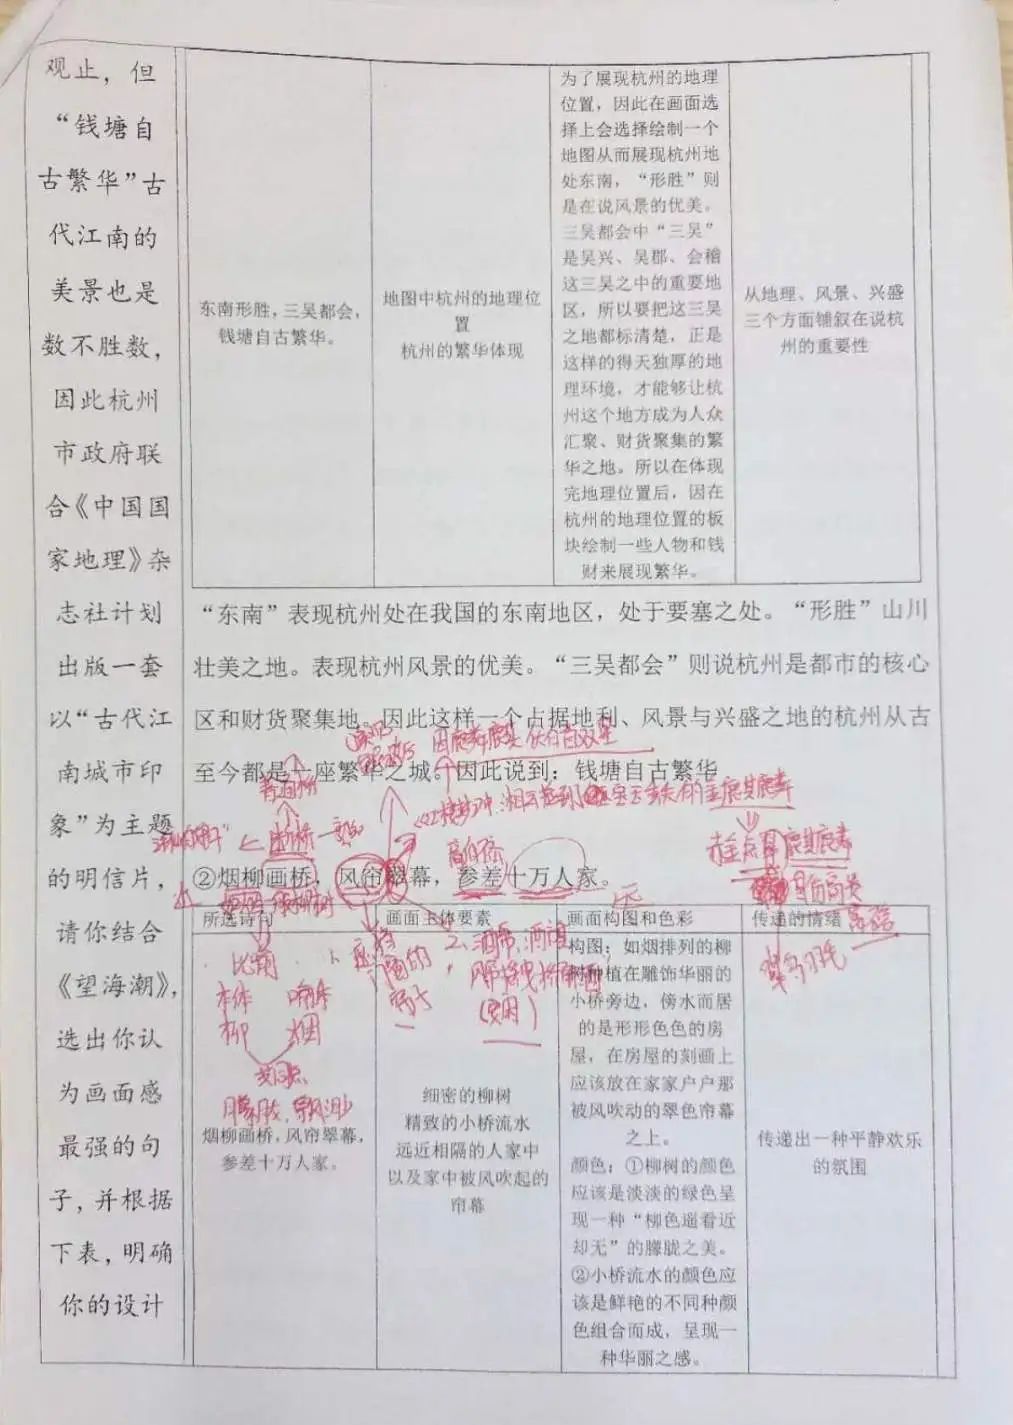 观止，但
“钱塘自
古繁华”古
代江南的
美景也是
数不胜数，
因此杭州
市政府联
合《中国国
家地理》杂
志社计划
出版一套
以“古代江
南城市印
象”为主题
的明信片，
请你结合
《望海潮》，
选出你认
为画面感
最强的句
子，并根据
下表，明确
你的设计
东南形胜，三吴都会，
钱塘自古繁华。
地图中杭州的地理位
置
杭州的繁华体现
为了展现杭州的地理
位置，因此在画面选
择上会选择绘制一个
地图从而展现杭州地
处东南，“形胜”则
是在说风景的优美。
三吴都会中“三吴”
是吴兴、吴郡、会稽
这三吴之中的重要地
区，所以要把这三吴
之地都标清楚，正是
这样的得天独厚的地
理环境，才能够让杭
州这个地方成为人众
汇聚、财货聚集的繁
华之地。所以在体现
完地理位置后，因在
杭州的地理位置的板
块绘制一些人物和钱
财来展现繁华。
从地理、风景、兴盛
三个方面铺叙在说杭
州的重要性
“东南”表现杭州处在我国的东南地区，处于要塞之处。“形胜”山川
壮美之地。表现杭州风景的优美。“三吴都会”则说杭州是都市的核心
区和财货聚集地。因此这样一个占据地利、风景与兴盛之地的杭州从古
至今都是一座繁华之城。因此说到：钱塘自古繁华
②烟柳画桥，风帘翠幕，参差十万人家。
所选诗句
画面主体要素
画面构图和色彩
传递的情绪
比喻
本体 喻体
柳 烟
共同点
朦胧
烟柳画桥，风帘翠幕，
参差十万人家。
细密的柳树
精致的小桥流水
远近相隔的人家中
以及家中被风吹起的
帘幕
构图：如烟排列的柳
树种植在雕饰华丽的
小桥旁边，傍水而居
的是形形色色的房
屋，在房屋的刻画上
应该放在家家户户那
被风吹动的翠色帘幕
之上。
颜色：①柳树的颜色
应该是淡淡的绿色呈
现一种“柳色遥看近
却无”的朦胧之美。
②小桥流水的颜色应
该是鲜艳的不同种颜
色组合而成，呈现一
种华丽之感。
传递出一种平静欢乐
的氛围